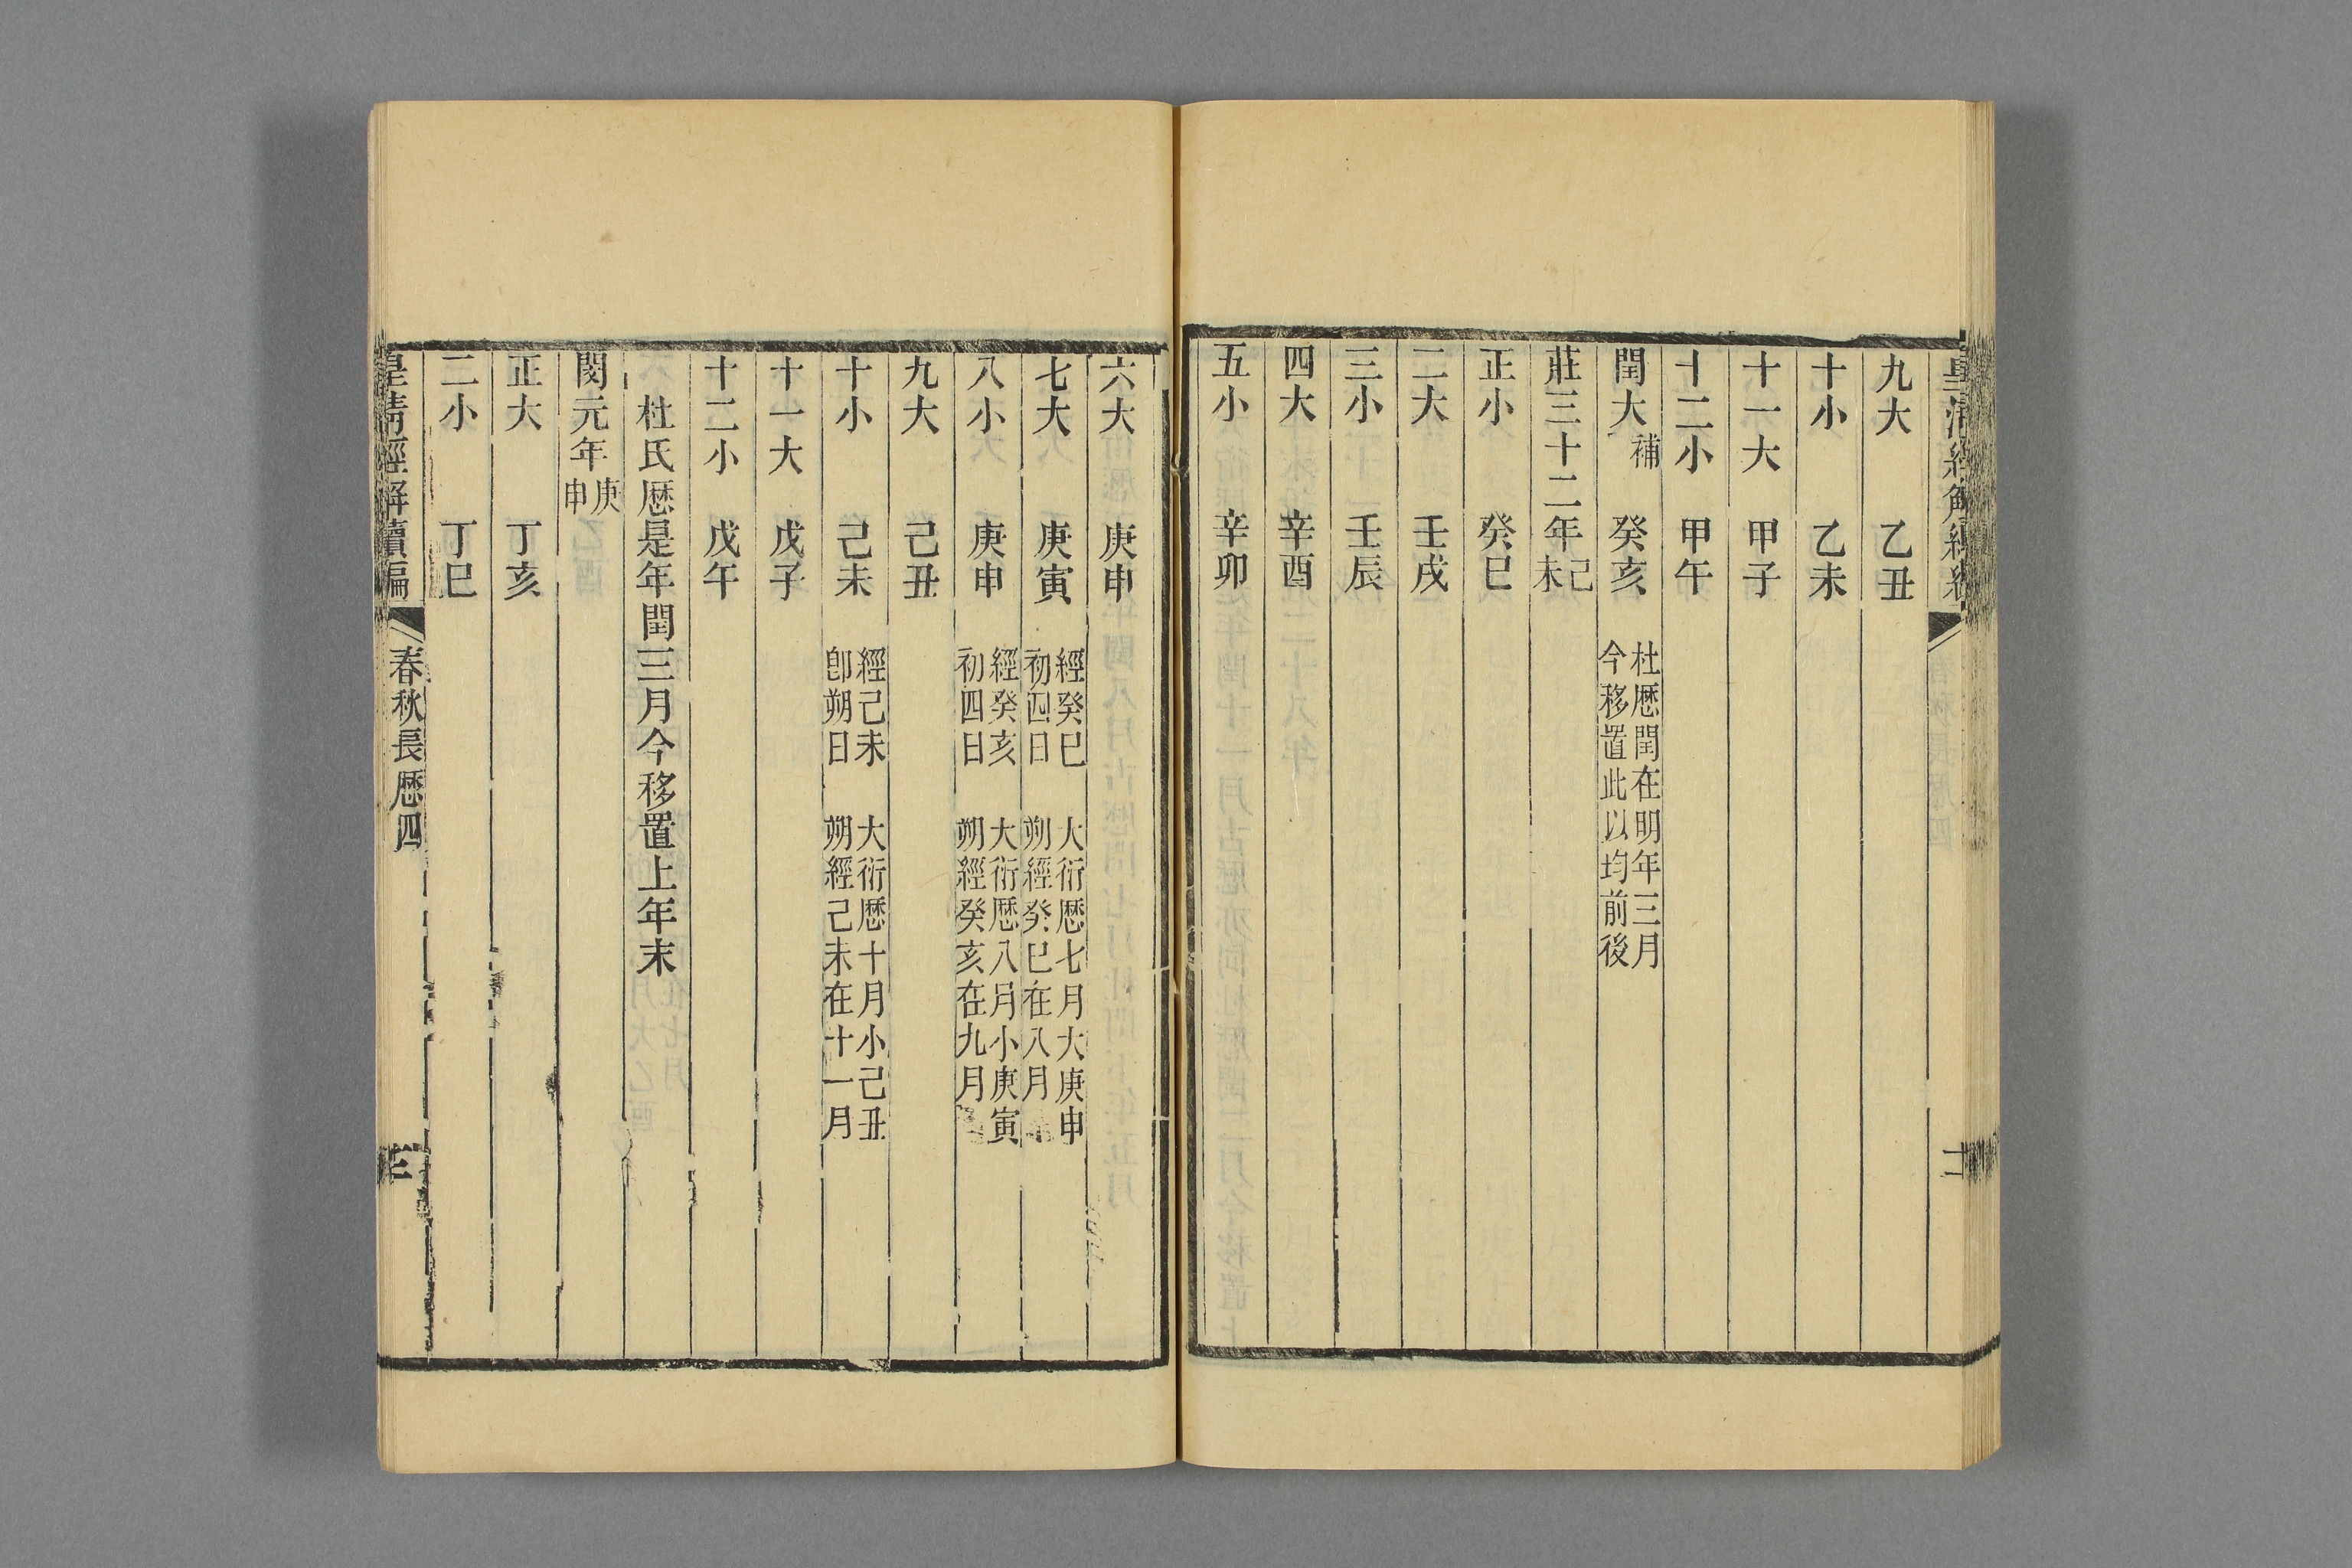 九大　乙丑
十小　乙未
十一大　甲子
十二小　甲午
閏大補　癸亥　杜厯閏在明年三月今移置此以均前後
莊三十二年己未
正小　癸巳
二大　壬戌
三小　壬辰
四大　辛酉
五小　辛卯
六大　庚申
七大　庚寅　經癸巳初四日　大衍厯七月大庚申朔經癸巳在八月
八小　庚申　經癸亥初四日　大衍厯八月小庚寅朔經癸亥在九月
九大　己丑
十小　己未　經己未卽朔日　大衍厯十月小己丑朔經己未在十一月
十一大　戊子
十二小　戊午
杜氏厯是年閏三月今移置上年末
閔元年庚申
正大　丁亥
二小　丁巳
皇清經解續編　春秋長厯四　三